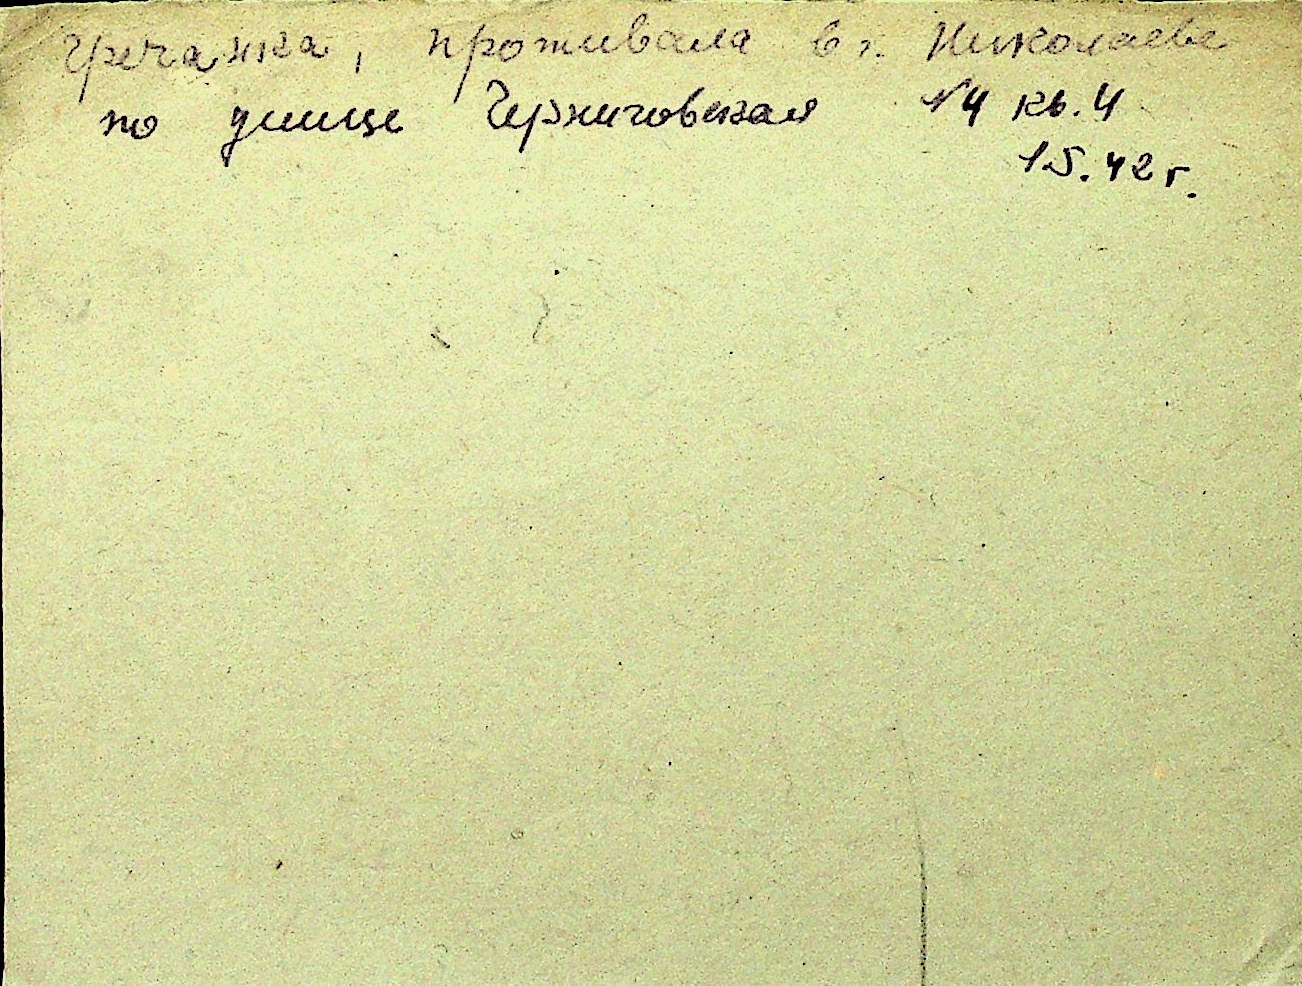 гречанка, проживала в г. Николаеве
по улице Черниговская №4 кв. 4
15.42 г.